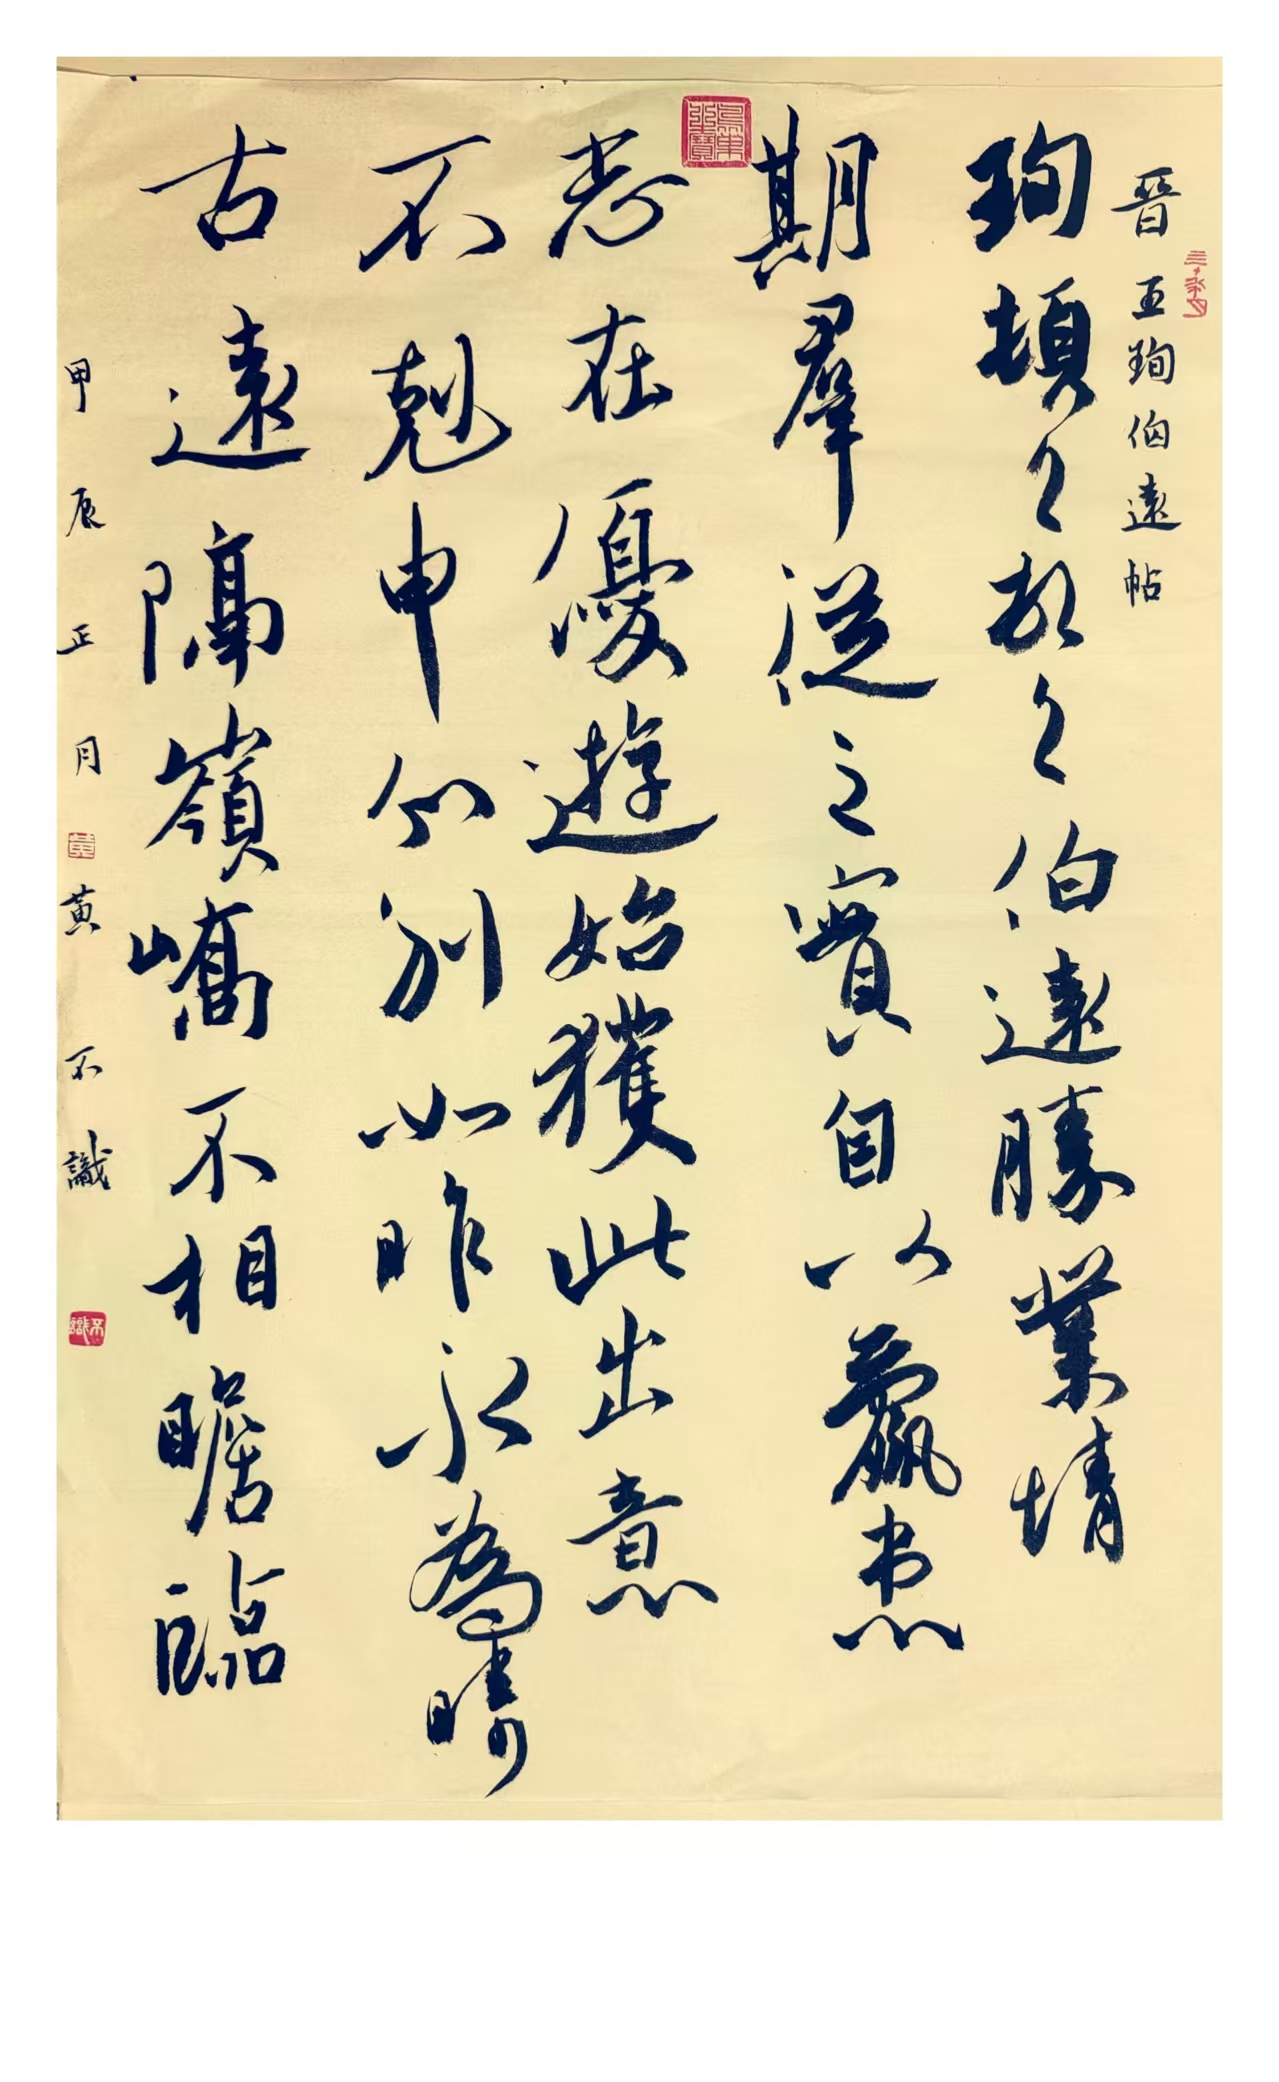 晉王珣伯遠帖
珣頓首頓首伯遠勝業情
期羣從之寶自以羸患
志在優遊始獲此出意
不剋申分別如昨永為疇
古遠隔嶺嶠不相瞻臨
甲辰正月黃不識
黃
不識